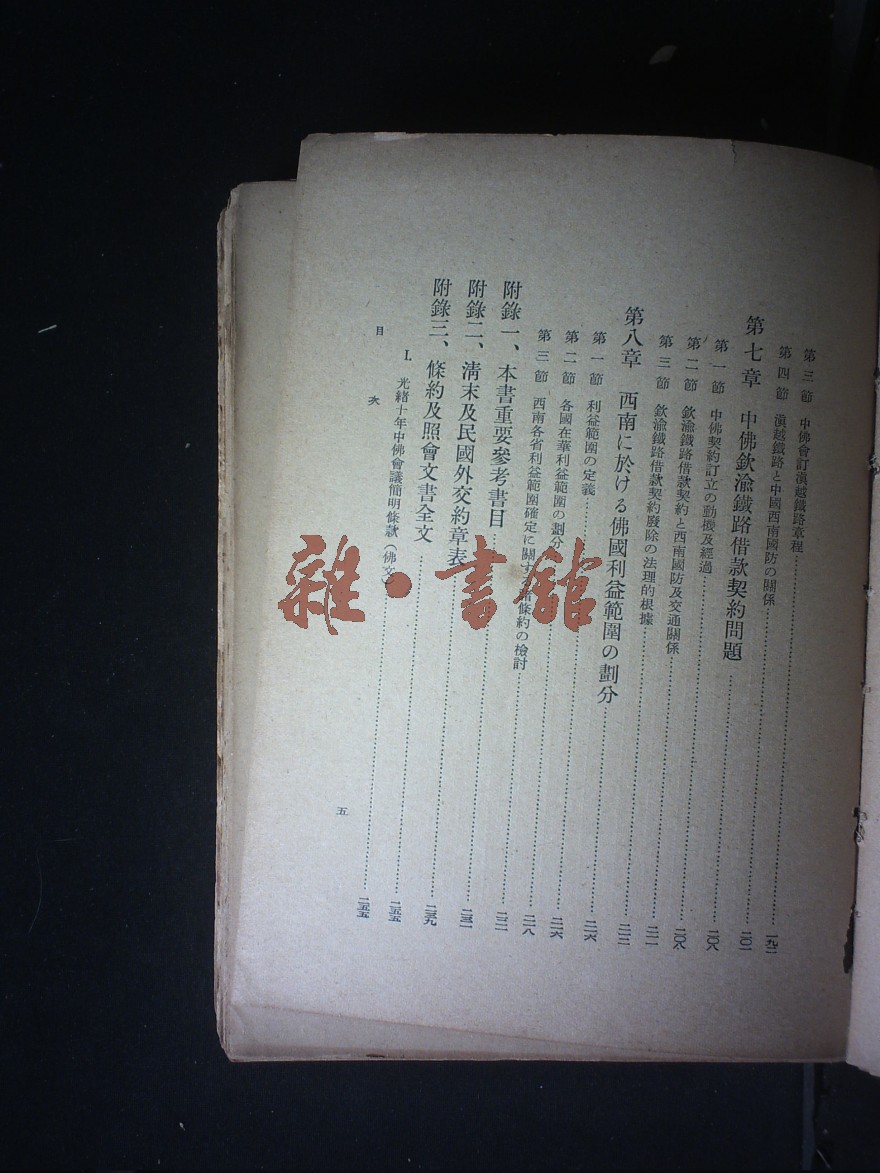 第三節 中佛會訂滇越鐵路章程……一九二
第四節 滇越鐵路と中國西南國防の關係……二〇一
第七章 中佛欽渝鐵路借款契約問題……二〇八
第一節 中佛契約訂立の動機及經過……二〇八
第二節 欽渝鐵路借款契約と西南國防及交通關係……二一一
第三節 欽渝鐵路借款契約廢除の法理的根據……二一二
第八章 西南に於ける佛國利益範圍の劃分……二一六
第一節 利益範圍の定義……二一六
第二節 各國在華利益範圍の劃分……二一八
第三節 西南各省利益範圍確定に關する諸條約の檢討……二二一
附錄一、本書重要參考書目……二三一
附錄二、淸末及民國外交約章表……二三九
附錄三、條約及照會文書全文……二五五
I. 光緒十年中佛會議簡明條款(佛文)……二五五
目次
五
雜·書館